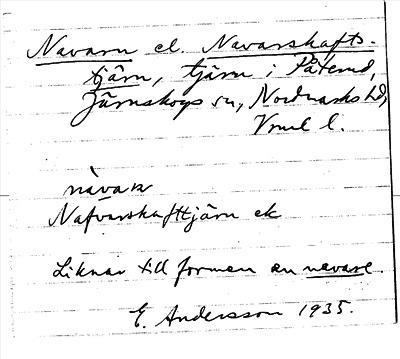 Navarn el. Navarskafts-
tjärn, tjärn i Påterud,
Järnskogs sn, Nordmarks hd,
Vrml l.
navaṛ
Nafvarskafttjärn ek
Liknar till formen en navare.
E. Andersson 1935.